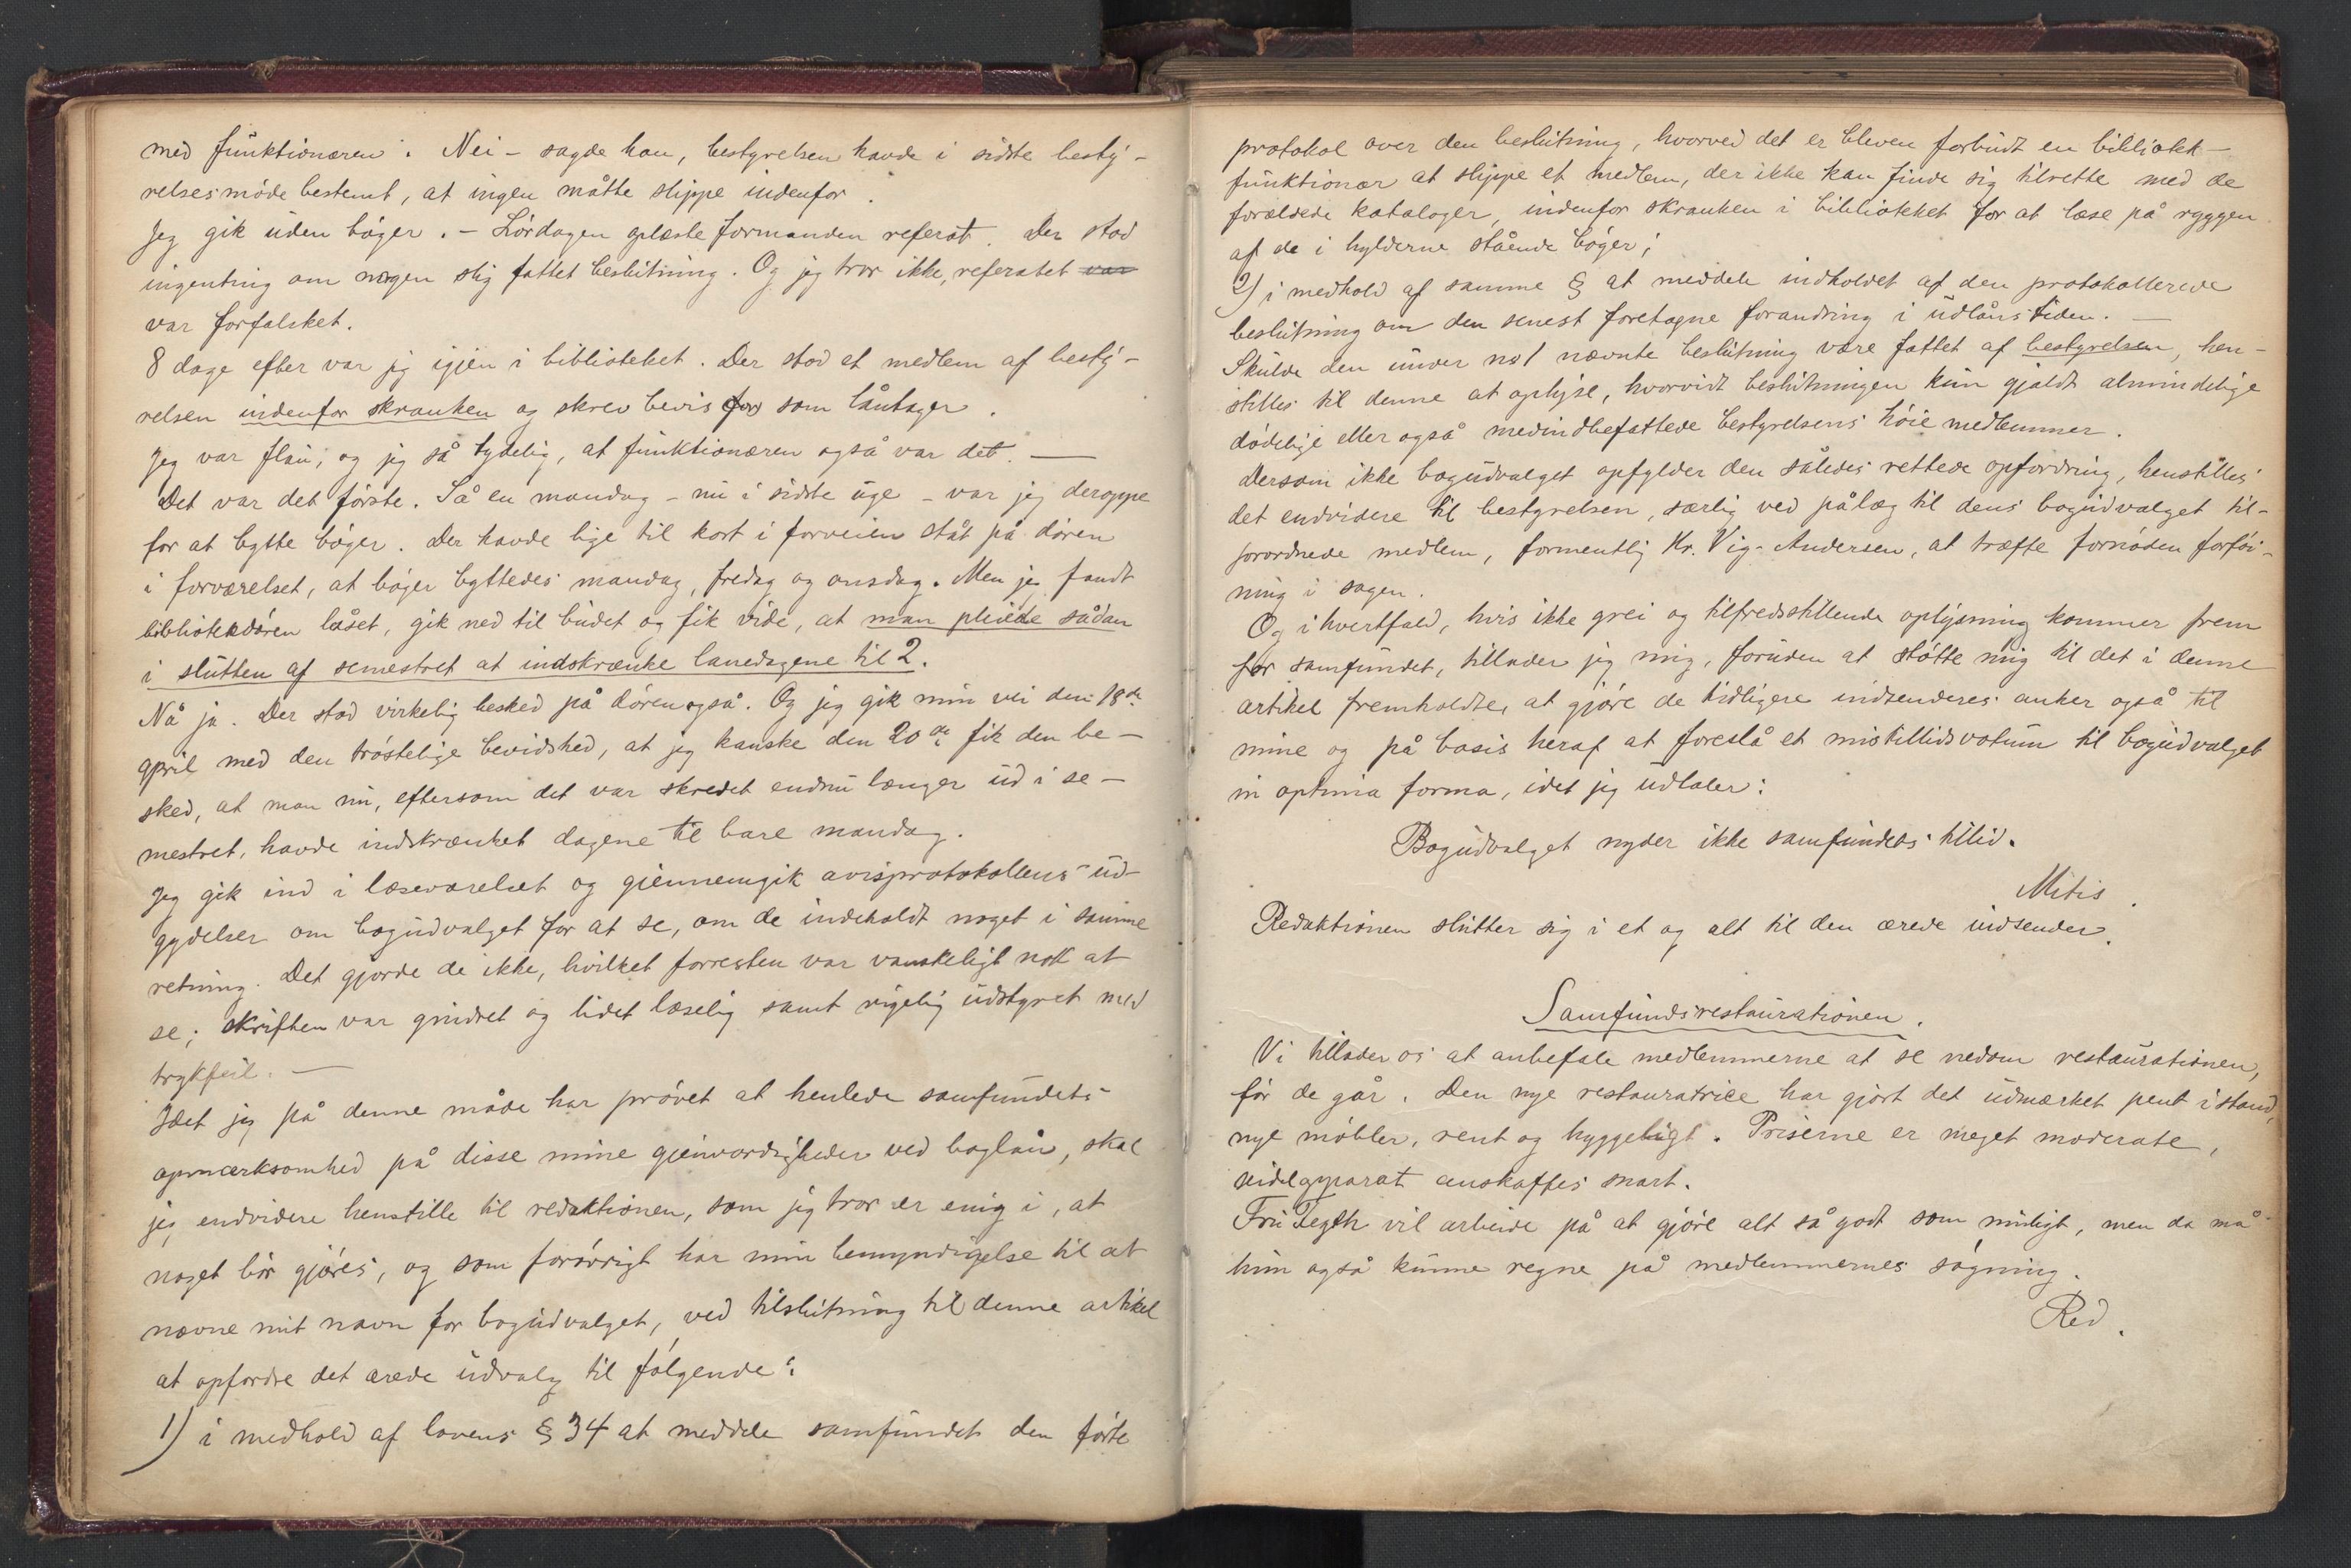 med funktionæren. Nei – sagde han, bestyrelsen havde i sidste besty-
relsesmøde bestemt, at ingen måtte slippe indenfor.
Jeg gik uden bøger. – Lørdagen oplæste formanden referat. Der stod
ingenting om nogen slig fattet beslutning. Og jeg tror ikke, referatet var
var forfalsket.
8 dage efter var jeg igjen i biblioteket. Der stod et medlem af besty-
relsen indenfor skranken og skrev bevis for som låntager.
Jeg var flau, og jeg så tydelig, at funktionæren også var det. —
Det var det første. Så en mandag – nu i sidste uge – var jeg deroppe
for at bytte bøger. Der havde lige til kort i forveien ståt på døren
i forværelset, at bøger byttedes mandag, fredag og onsdag. Men jeg fandt
bibliotekdøren låset, gik ned til budet og fik vide, at man pleiede sådan
i slutten af semestret at indskrænke lanedagene til 2.
Nå ja. Der stod virkelig besked på døren også. Og jeg gik min vei den 18de
april med den trøstelige bevidshed, at jeg kanske den 20de fik den be-
sked, at man nu, eftersom det var skredet endnu længer ud i se-
mestret, havde indskrænket dagene til bare mandag.
Jeg gik ind i læseværelset og gjennemgik avisprotokollens ud-
gydelser om bogudvalget for at se, om de indeholdt noget i samme
retning. Det gjorde de ikke, hvilket forresten var vanskeligt nok at
se; skriften var gnidret og lidet læselig samt rigelig udstyret med
trykfeil. —
Idet jeg på denne måde har prøvet at henlede samfundets
opmærksomhed på disse mine gjenvordigheder ved boglån, skal
jeg endvidere henstille til redaktionen, som jeg tror er enig i, at
noget bør gjøres, og som forøvrigt har min bemyndigelse til at
nævne mit navn for bogudvalget, ved tilslutning til denne artikel
at opfordre det ærede udvalg til følgende:
1) i medhold af lovens § 34 at meddele samfundet den førte
protokol over den beslutning, hvorved det er bleven forbudt en bibliotek-
funktionær at slippe et medlem, der ikke kan finde sig tilrette med de
forældede kataloger, indenfor skranken i biblioteket for at læse på ryggen
af de i hylderne stående bøger;
2) i medhold af samme § at meddele indholdet af den protokollerede
beslutning om den senest foretagne forandring i udlånstiden. —
Skulde den under no 1 nævnte beslutning være fattet af bestyrelsen, hen-
stilles til denne at oplyse, hvorvidt beslutningen kun gjaldt almindelige
dødelige eller også medindbefattede bestyrelsens høie medlemmer.
Dersom ikke bogudvalget opfylder den således rettede opfordring, henstilles
det endvidere til bestyrelsen, særlig ved pålæg til dens bogudvalget til-
forordnede medlem, formentlig Hr. Vig-Andersen, at træffe fornøden forføi-
ning i sagen.
Og i hvertfald, hvis ikke grei og tilfredsstillende oplysning kommer frem
for samfundet, tillader jeg mig, foruden at støtte mig til det i denne
artikel fremholdte, at gjøre de tidligere indsenderes anker også til
mine og på basis heraf at foreslå et mistillidsvotum til bogudvalget
in optima forma, idet jeg udtaler:
Bogudvalget nyder ikke samfundets tillid.
Mitis.
Redaktionen slutter sig i et og alt til den ærede indsender.
Samfundsrestaurationen.
Vi tillader os at anbefale medlemmerne at se nedom restaurationen,
før de går. Den nye restauratrice har gjort det udmærket pent istand,
nye møbler, rent og hyggeligt. Priserne er meget moderate,
apparat anskaffes snart.
Fru vil arbeide på at gjøre alt så godt som muligt, men da må
hun også kunne regne på medlemmernes søgning.
Red.